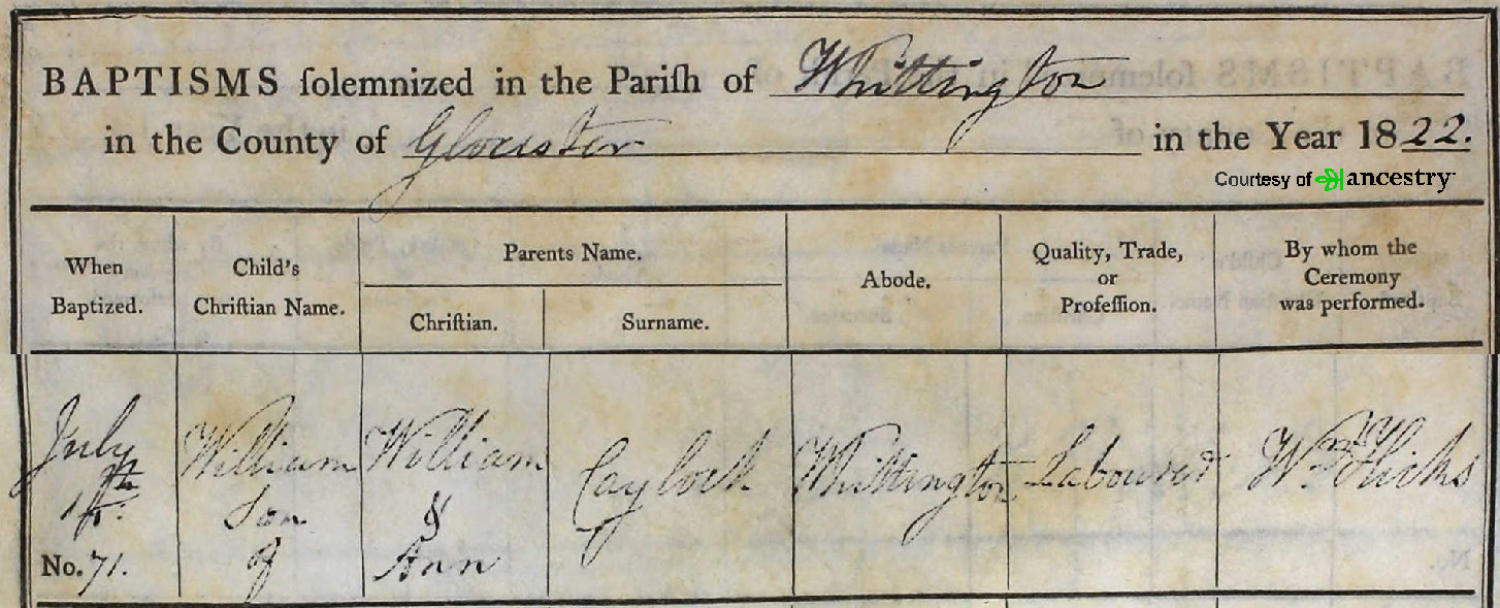 BAPTISMS ſolemnized in the Pariſh of Whittington
in the County of Glocester in the Year 1822.
Courtesy of ancestry
When Baptized.
Child's Chriſtian Name.
Parents Name.
Chriſtian.
Surname.
Abode.
Quality, Trade, or Profeſſion.
By whom the Ceremony was performed.
July
No. 71.
William
Son
of
William
&
Ann
Caylock
Whittington
Labourer
Wm Hicks